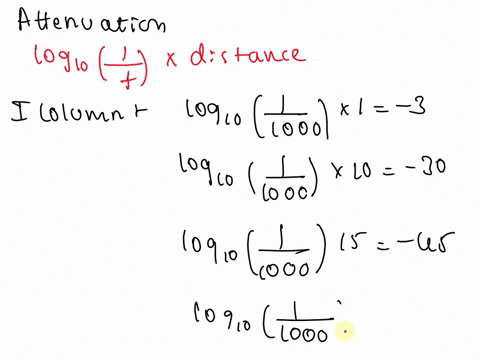 Attenuation
log10 (1/f) × distance
I column + log10 (1/1000) × 1 = -3
log10 (1/1000) × 10 = -30
log10 (1/1000) 15 = -45
log10 (1/1000